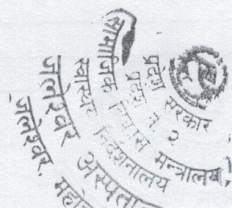 प्रदेश सरकार
प्रदेश नं २
सामाजिक विकास मन्त्रालय
स्वास्थ्य निर्देशनालय
जलेश्वर अस्पताल
जलेश्वर